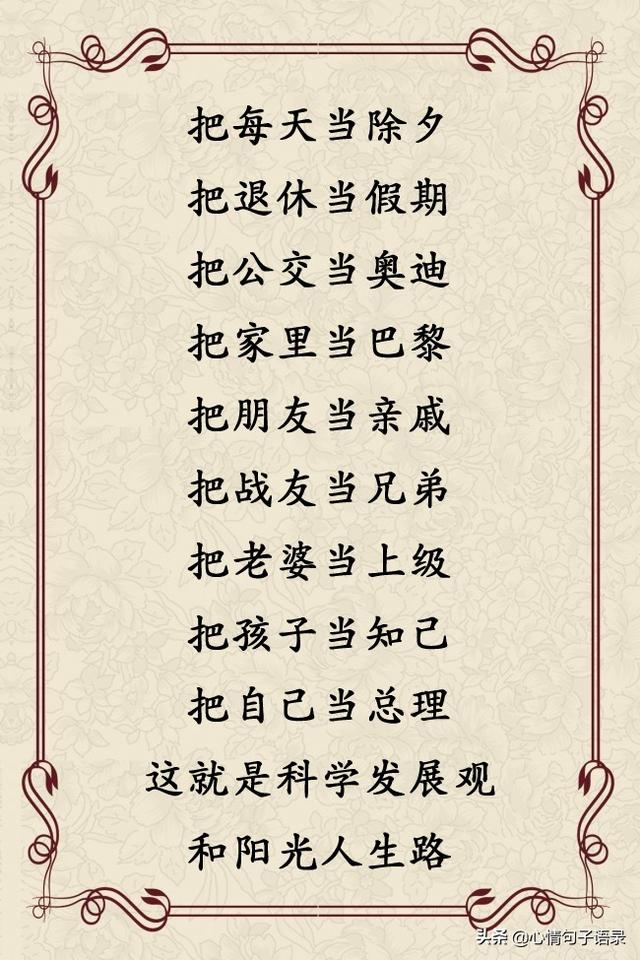 把每天当除夕
把退休当假期
把公交当奥迪
把家里当巴黎
把朋友当亲戚
把战友当兄弟
把老婆当上级
把孩子当知己
把自己当总理
这就是科学发展观
和阳光人生路
头条 @心情句子语录